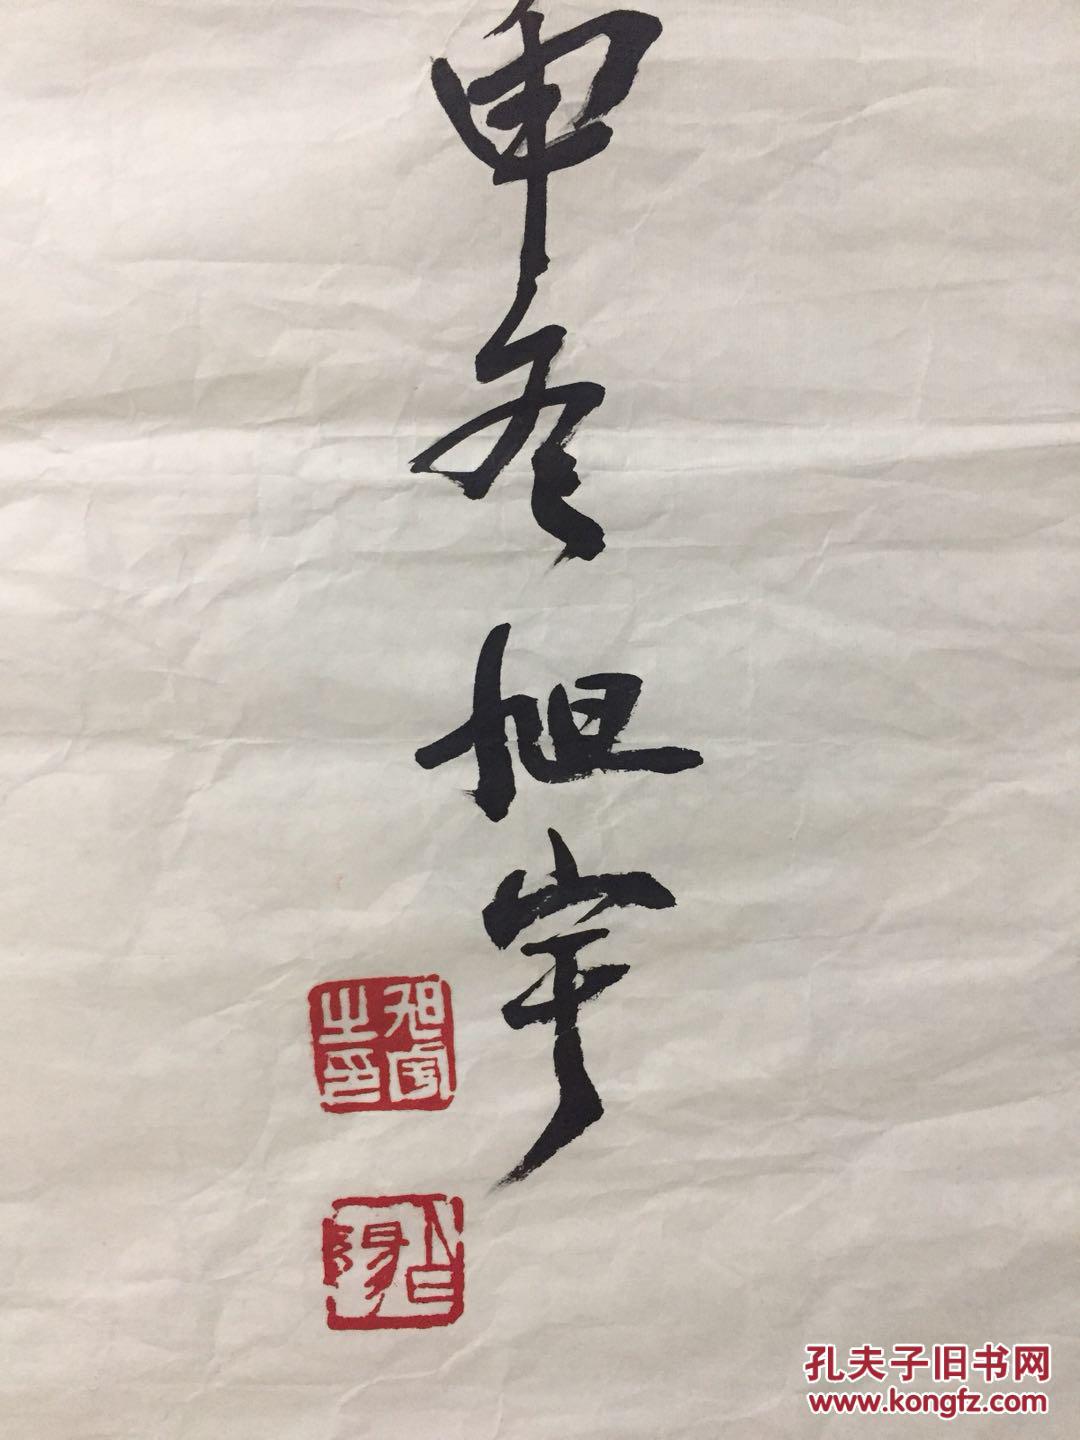 申冬 旭宇
旭宇
之印
孔夫子旧书网
www.kongfz.com